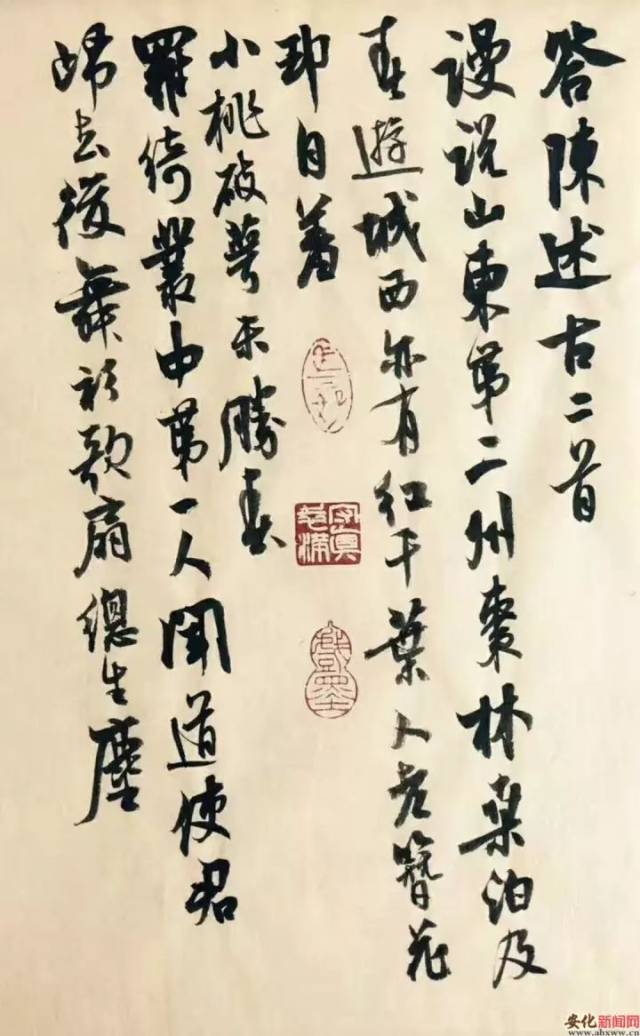 答陳述古二首
謾說山東第二州棗林桑泊負
春遊城西亦有紅千葉人老簪花
卻自羞
守真志滿
戲墨
小桃破萼未勝春
羅綺叢中第一人聞道使君
歸去後舞衫歌扇總生塵
安化新闻网